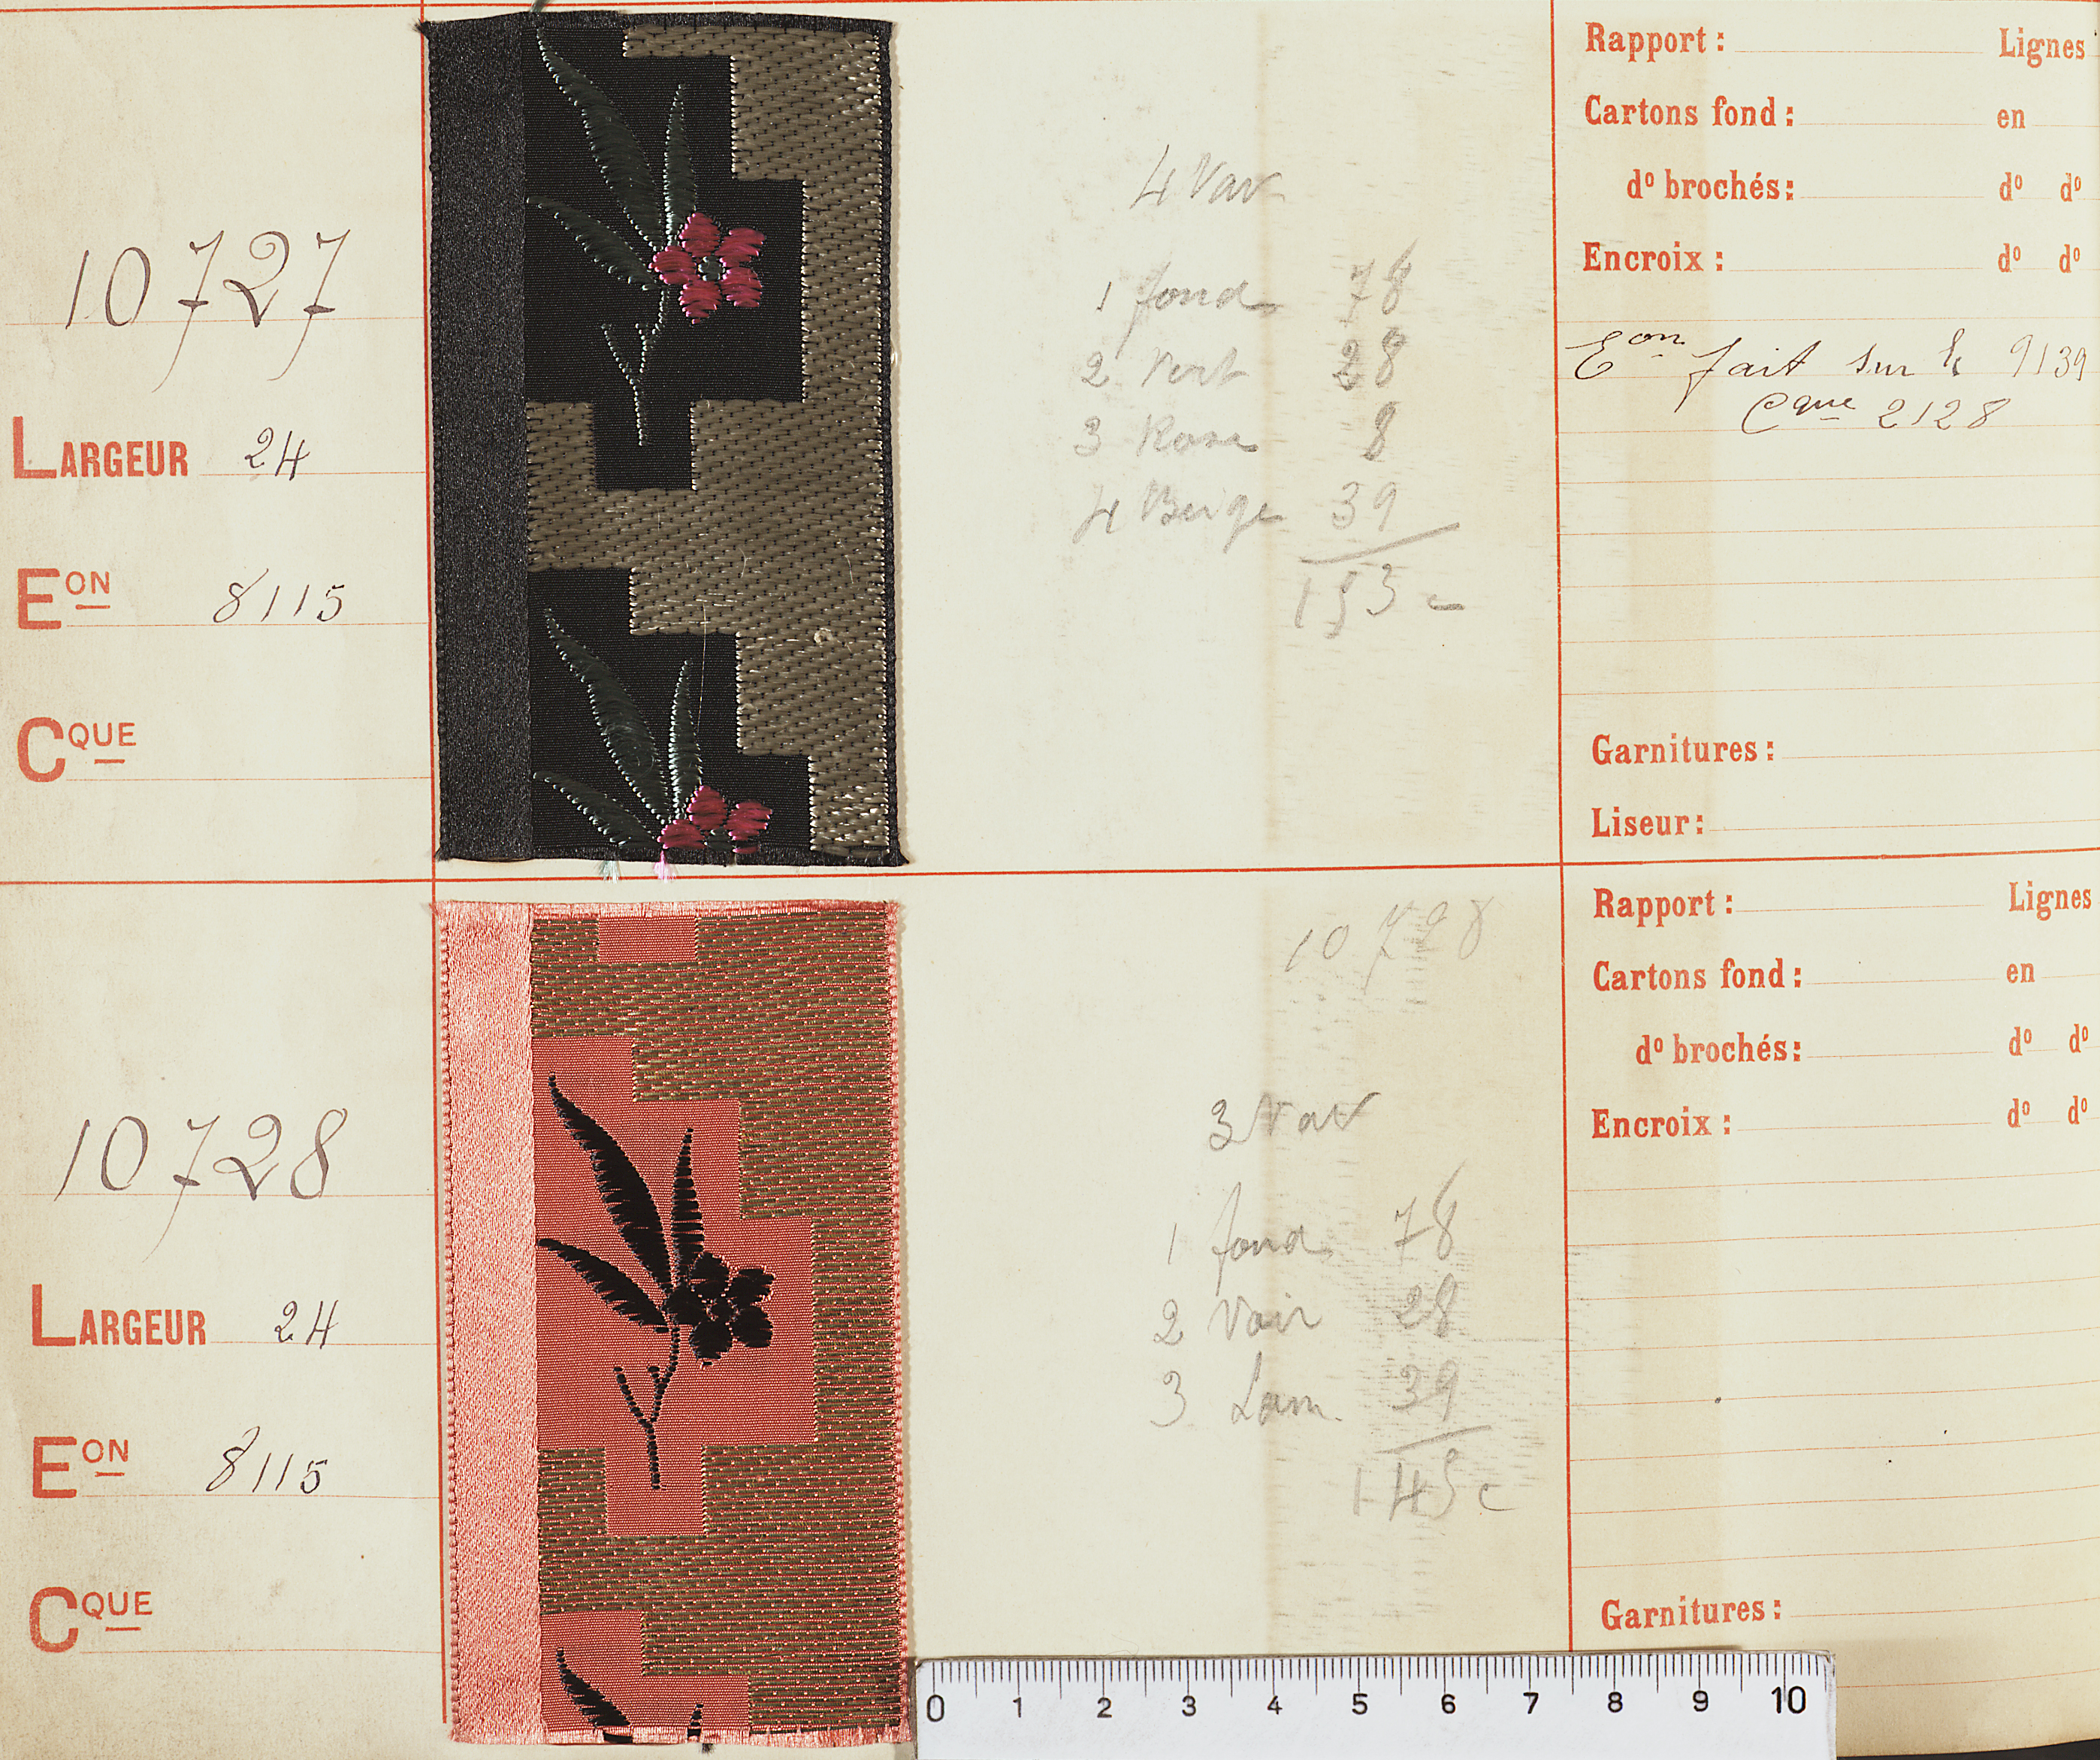 10727
LARGEUR 24
EON 8115
CQUE
4 Nav
1 fond 78
2 Vert 28
3 Rose 8
4 Beige 39
153 c
Rapport : Lignes
Cartons fond : en
do brochés: do do
Encroix : do do
Eon fait sur le 9139
Cque 2128
Garnitures :
Liseur :
10728
LARGEUR 24
EON 8115
CQUE
10728
3 Nav
1 fond 78
2 Noir 28
3 Lam. 39
145 c
Rapport : Lignes
Cartons fond : en
do brochés: do do
Encroix : do do
Garnitures :
0 1 2 3 4 5 6 7 8 9 10